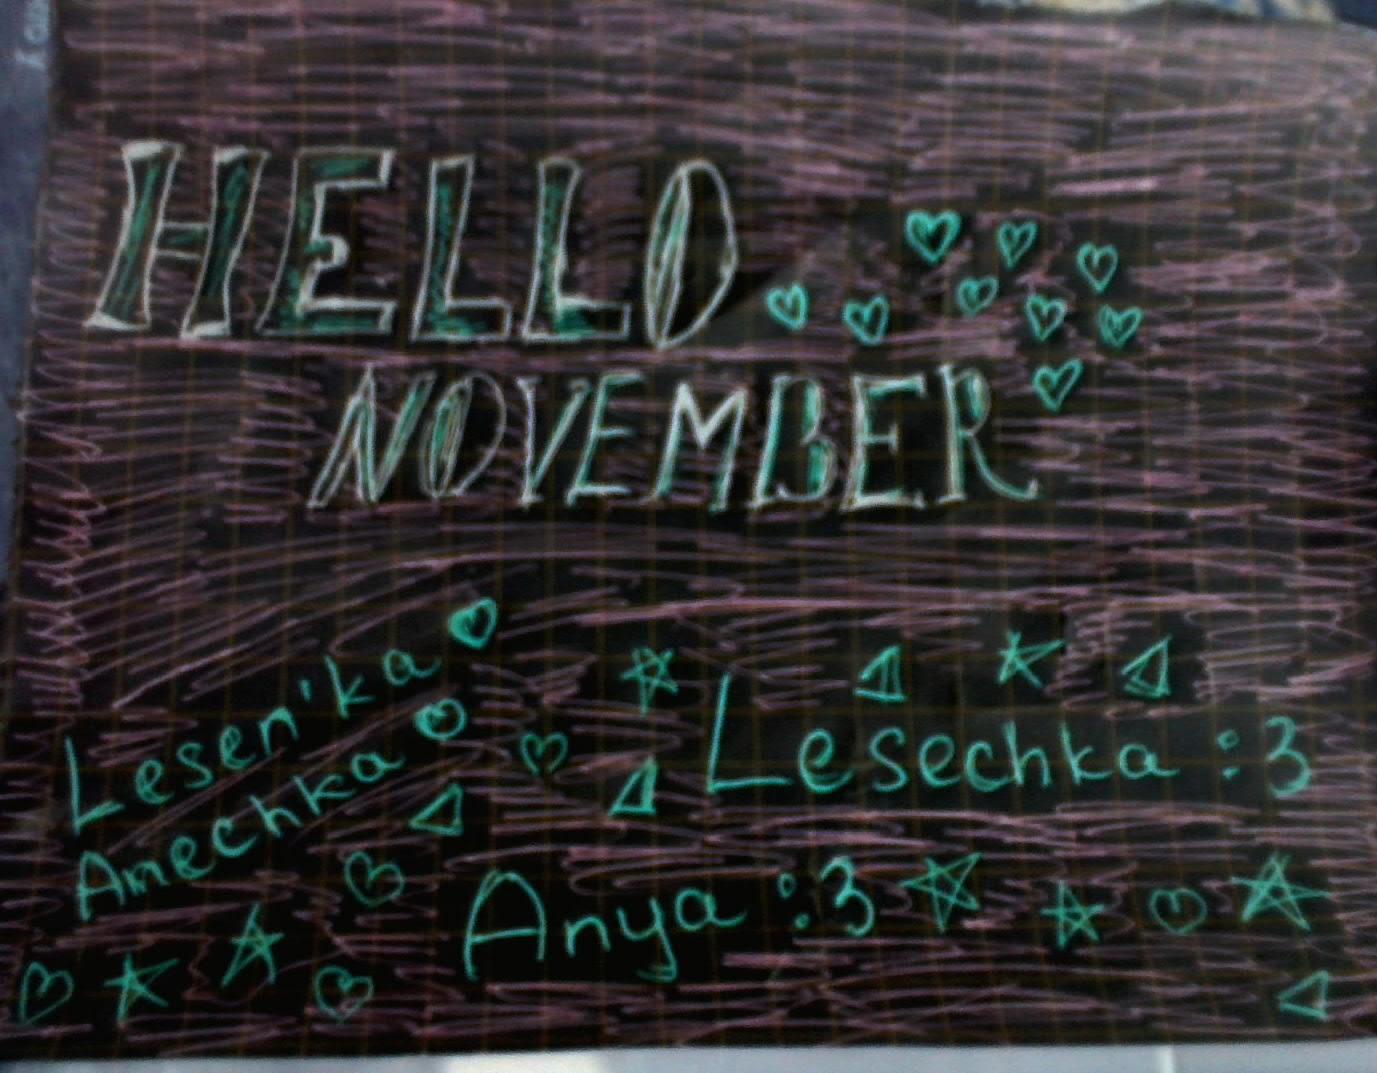 HELLO
NOVEMBER
Lesen'ka
Anechka
Lesechka :3
Anya :3